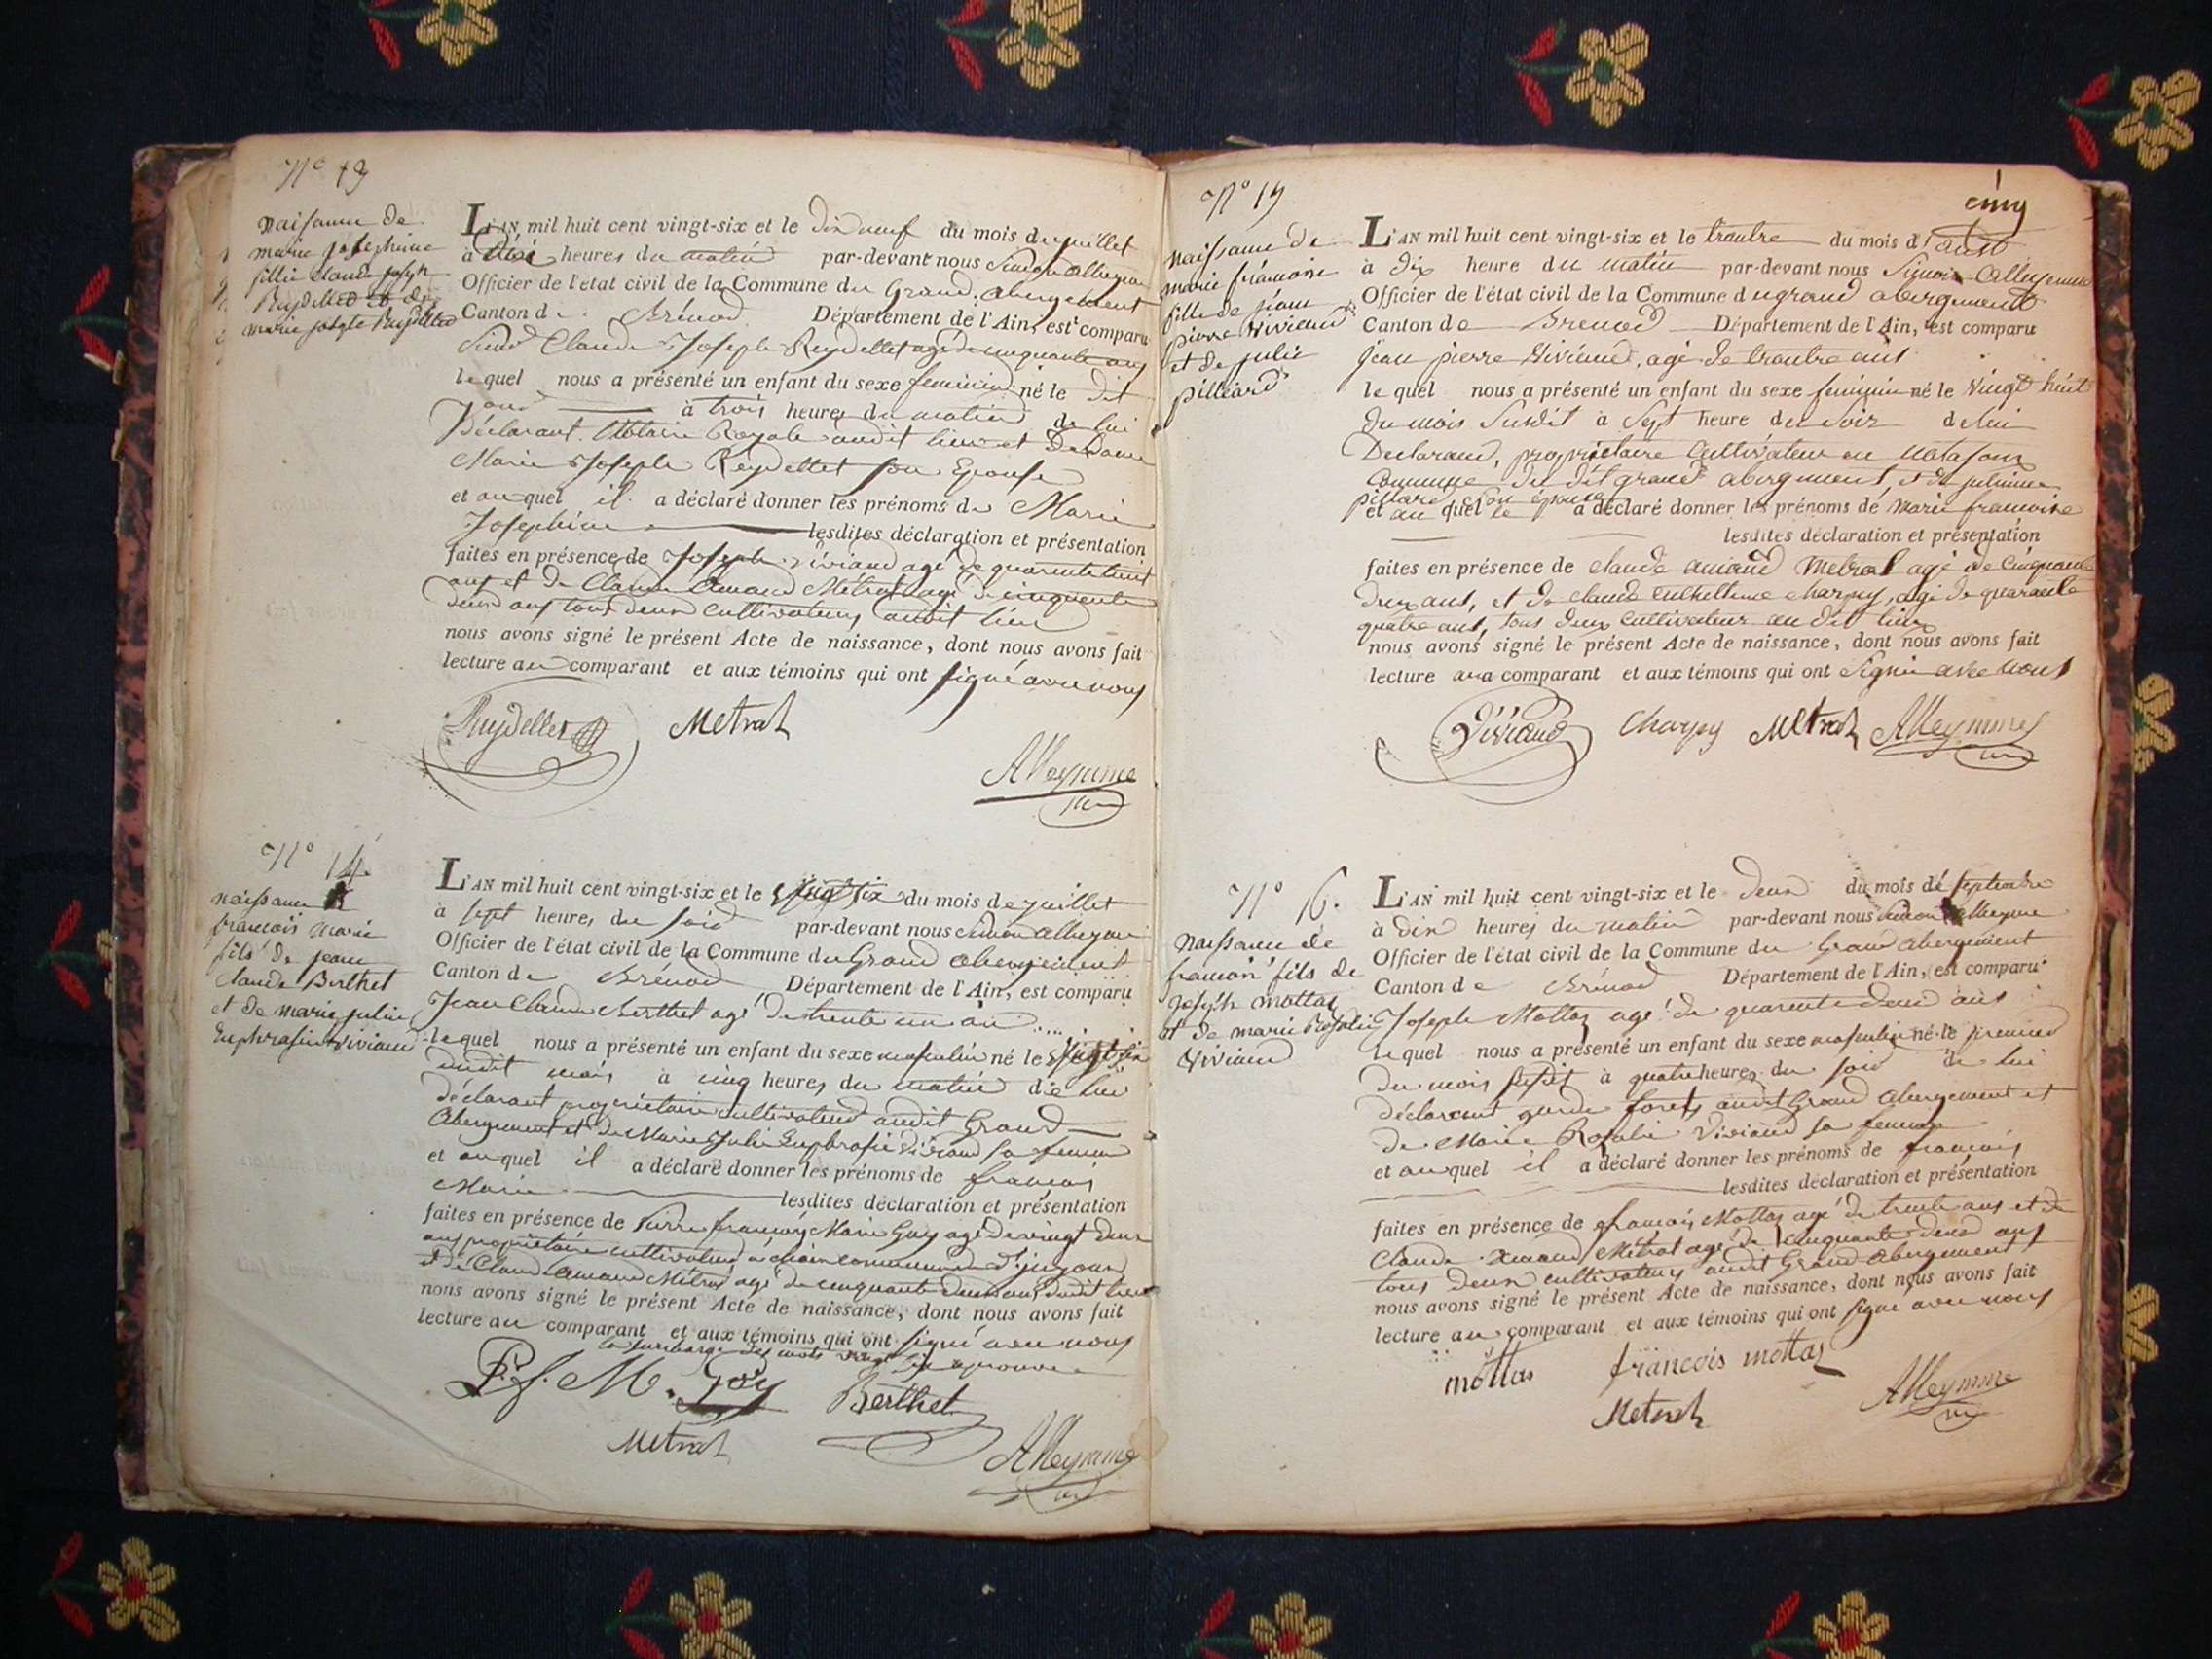 N° 13
naissance de
marie josephine
fillie claude joseph
Reydellet et de
marie josephte Reydellet
L'AN mil huit cent vingt-six et le dix neuf du mois de juillet
à dix heures du matin par-devant nous Simon alleymme
Officier de l'état civil de la Commune du Grand abergement
Canton de Brénod Département de l'Ain, est comparu
Sieur Claude Joseph Reydellet agé de cinquante ans
lequel nous a présenté un enfant du sexe feminin né le dit
jour à trois heures du matin de lui
Déclarant Notaire Royale audit lieu et de Dame
Marie Joseph Reydellet son Epouse
et auquel il a déclaré donner les prénoms de Marie
Josephine lesdites déclaration et présentation
faites en présence de Joseph Viviand agé de quarente huit
ans et de Claude Amand Métral agé de cinquante
deux ans tous deux cultivateurs audit lieu
nous avons signé le présent Acte de naissance, dont nous avons fait
lecture au comparant et aux témoins qui ont signé avec nous
Reydellet Metral
Alleymme
N° 14.
naissance de
francois marie
fils de jean
claude Berthet
et de marie julie
Euphrasie viviand
L'AN mil huit cent vingt-six et le vingt six du mois de juillet
à sept heures du soir par-devant nous Simon alleymme
Officier de l'état civil de la Commune du Grand abergement
Canton de Brénod Département de l'Ain, est comparu
Jean Claude Berthet agé de trente un an
lequel nous a présenté un enfant du sexe masculin né le vingt six
dudit mois à cinq heures du matin de lui
déclarant propriétaire cultivateur audit Grand
Abergement et de Marie Julie Euphrasie Viviand sa femme
et auquel il a déclaré donner les prénoms de francois
Marie lesdites déclaration et présentation
faites en présence de Pierre francois Marie Goy agé de vingt deux
ans propriétaire cultivateur a commune d'injoux
et de Claude Amand Métral agé de cinquante deux ans dudit lieu
nous avons signé le présent Acte de naissance, dont nous avons fait
lecture au comparant et aux témoins qui ont signé avec nous
la surcharge des mots vingt six aprouvé
P. f. M. Goy Berthet
Metral
Alleymme
cinq
N° 15
naissance de
marie francoise
fille de jean
pierre Viviand
et de julie
pilleard
L'AN mil huit cent vingt-six et le trantre du mois d'aust
à dix heure du matin par-devant nous Simon Alleymme
Officier de l'état civil de la Commune du grand abergement
Canton de Brenod Département de l'Ain, est comparu
jean pierre Viviand, agé de trantre ans
lequel nous a présenté un enfant du sexe feminin né le Vingt huit
du mois Susdit à Sept heure du Soir de lui
Declarand, propriétaire Cultivateur au
Commune du dit grand abergement, et de julienne
pillard, son épouse
et au quel le a déclaré donner les prénoms de marie francoise
lesdites déclaration et présentation
faites en présence de claude amand Metral agé de Cinquante
deux ans, et de claude charpy, agé de quarante
quatre ans, tous deux Cultivateur au dit lieu
nous avons signé le présent Acte de naissance, dont nous avons fait
lecture au a comparant et aux témoins qui ont Signé avec nous
Viviand Charpy Metral Alleymme
N° 16.
naissance de
francois fils de
joseph mottaz
et de marie Rosalie
Viviand
L'AN mil huit cent vingt-six et le deux du mois de septembre
à dix heures du matin par-devant nous Simon Alleymme
Officier de l'état civil de la Commune du Grand abergement
Canton de Brénod Département de l'Ain, est comparu
Joseph Mottaz agé de quarente deux ans
lequel nous a présenté un enfant du sexe masculin né le premier
du mois susdit à quatre heures du soir de lui
déclarant garde forets audit Grand abergement et
de Marie Rosalie Viviand sa femme
et auquel il a déclaré donner les prénoms de francois
lesdites déclaration et présentation
faites en présence de francois Mottaz agé de trente ans et de
Claude Amand Métral agé de cinquante deux ans
tous deux cultivateurs audit Grand abergement
nous avons signé le présent Acte de naissance, dont nous avons fait
lecture au comparant et aux témoins qui ont signé avec nous
mottas francois mottaz
Metral
Alleymme